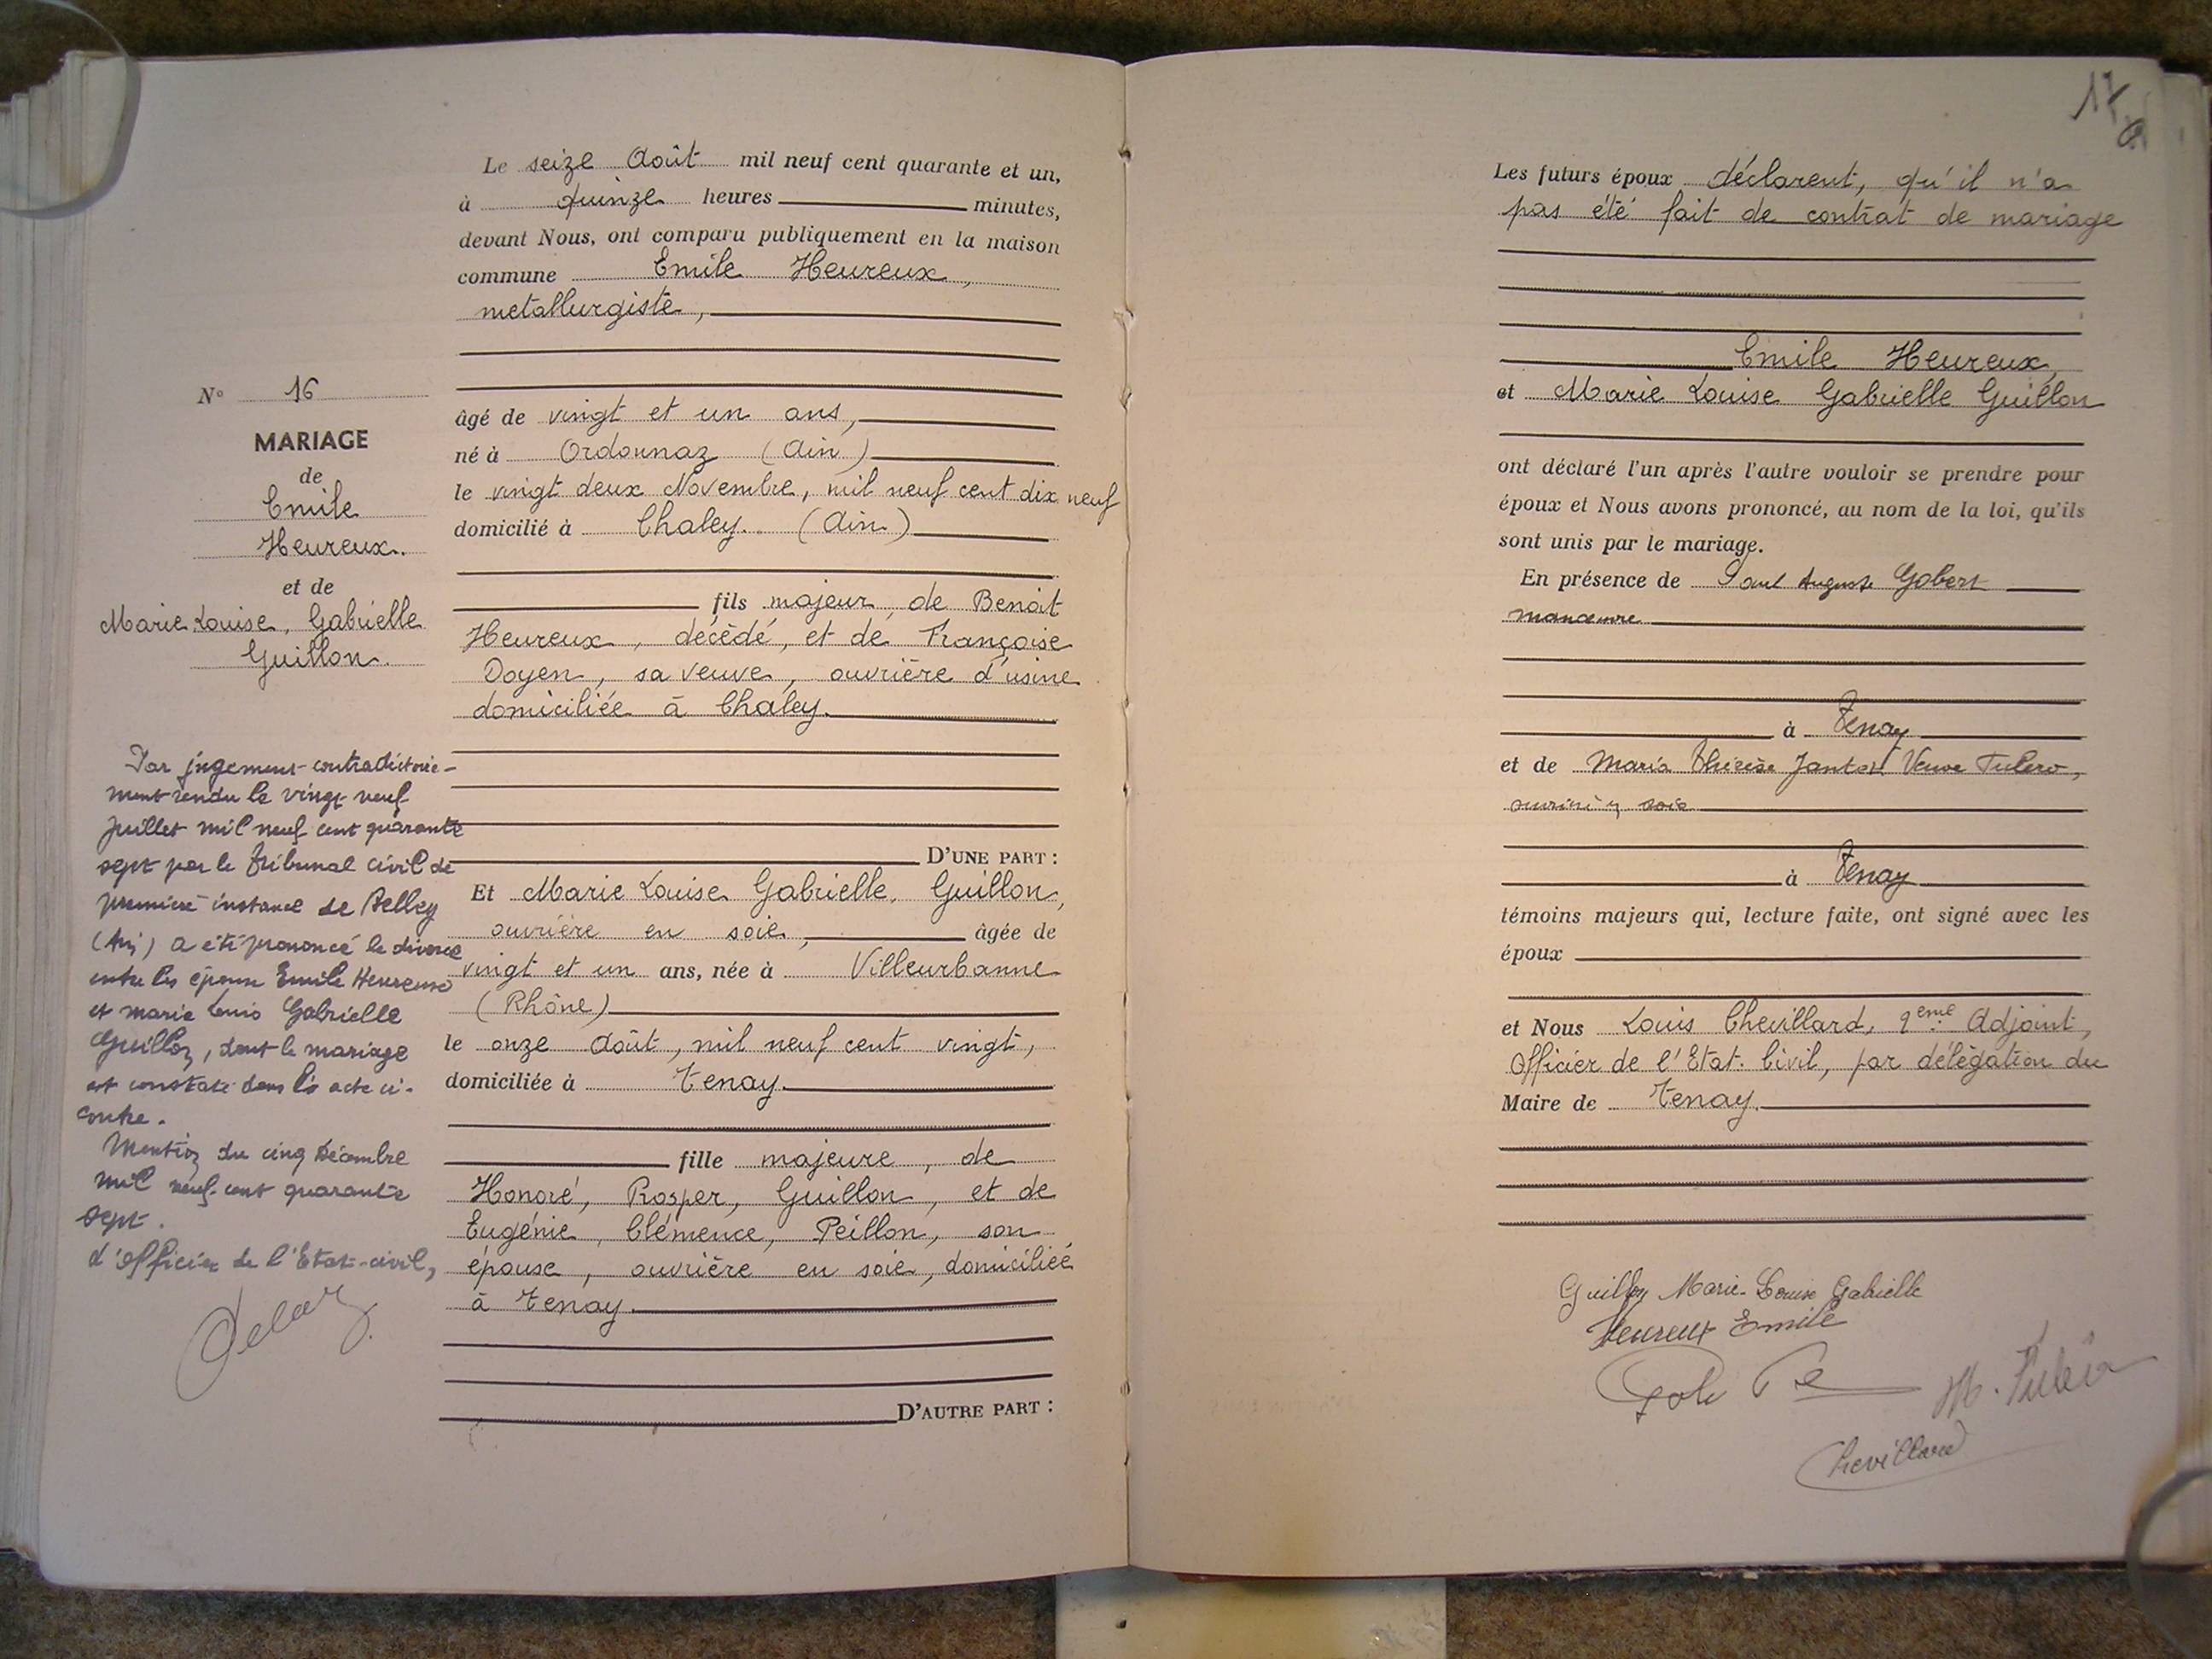 Le seize Août mil neuf cent quarante et un,
à quinze heures minutes,
devant Nous, ont comparu publiquement en la maison
commune Emile Heureux,
metallurgiste,
N° 16
MARIAGE
de
Emile
Heureux.
et de
Marie Louise, Gabrielle
Guillon.
âgé de vingt et un ans,
né à Ordonnaz (Ain)
le vingt deux Novembre, mil neuf cent dix neuf
domicilié à Chaley. (Ain)
fils majeur de Benoît
Heureux, décédé, et de Françoise
Doyen, sa veuve, ouvrière d'usine
domiciliée à Chaley.
D'UNE PART :
Et Marie Louise Gabrielle, Guillon,
ouvrière en soie, âgée de
vingt et un ans, née à Villeurbanne
(Rhône)
le onze Août, mil neuf cent vingt,
domiciliée à Tenay.
fille majeure, de
Honoré, Prosper, Guillon, et de
Eugénie, Clémence, Peillon, son
épouse, ouvrière en soie, domiciliée
à Tenay.
D'AUTRE PART :
Par jugement contradictoire-
ment rendu le vingt neuf
Juillet mil neuf cent quarante
sept par le Tribunal civil de
première instance de Belley
(Ain) a été prononcé le divorce
entre les époux Emile Heureux
et Marie Louis Gabrielle
Guillon, dont le mariage
est constaté dans l'acte ci-
contre.
Mention du cinq Décembre
mil neuf cent quarante
sept.
L'Officier de l'Etat-civil,
17
Les futurs époux déclarent, qu'il n'a
pas été fait de contrat de mariage
Emile Heureux,
et Marie Louise Gabrielle Guillon
ont déclaré l'un après l'autre vouloir se prendre pour
époux et Nous avons prononcé, au nom de la loi, qu'ils
sont unis par le mariage.
En présence de Paul Auguste Gobert
manœuvre
à Tenay
et de Maria Thérèse Janton Veuve Tulero,
soie
à Tenay
témoins majeurs qui, lecture faite, ont signé avec les
époux
et Nous Louis Chevillard, 2eme Adjoint,
Officier de l'Etat. Civil, par délégation du
Maire de Tenay.
Guillon Marie-Louise Gabrielle
Heureux Emile
Chevillard